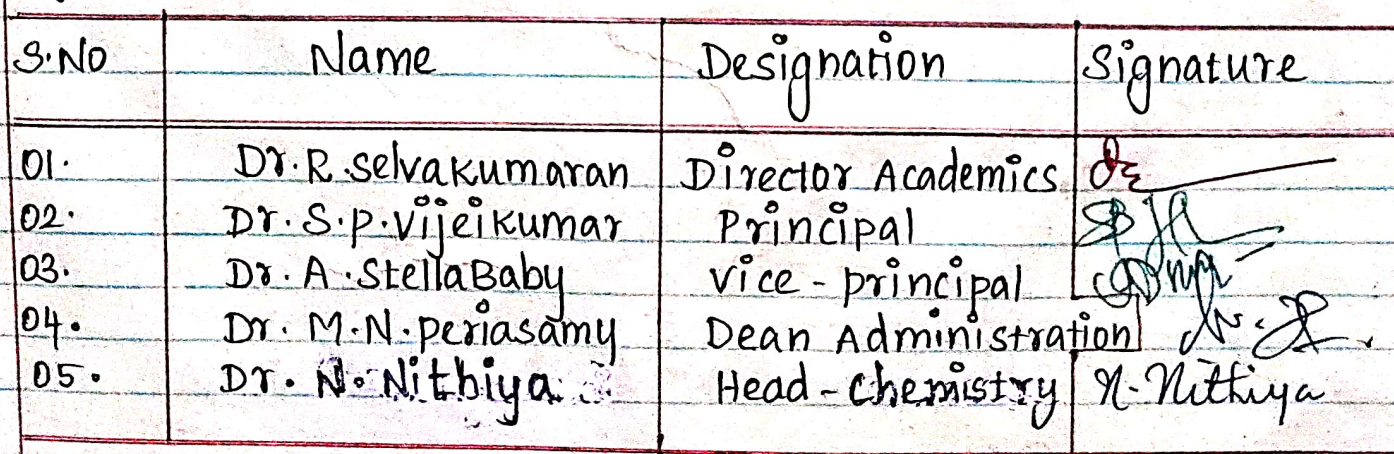 S.NO Name Designation Signature
01. Dr. R. Selvakumaran Director Academics
02. Dr. S.P. Vijeikumar Principal
03. Dr. A. Stella Baby Vice - principal
04. Dr. M.N. periasamy Dean Administration
05. Dr. N. Nithiya Head - Chemistry N. Nithiya